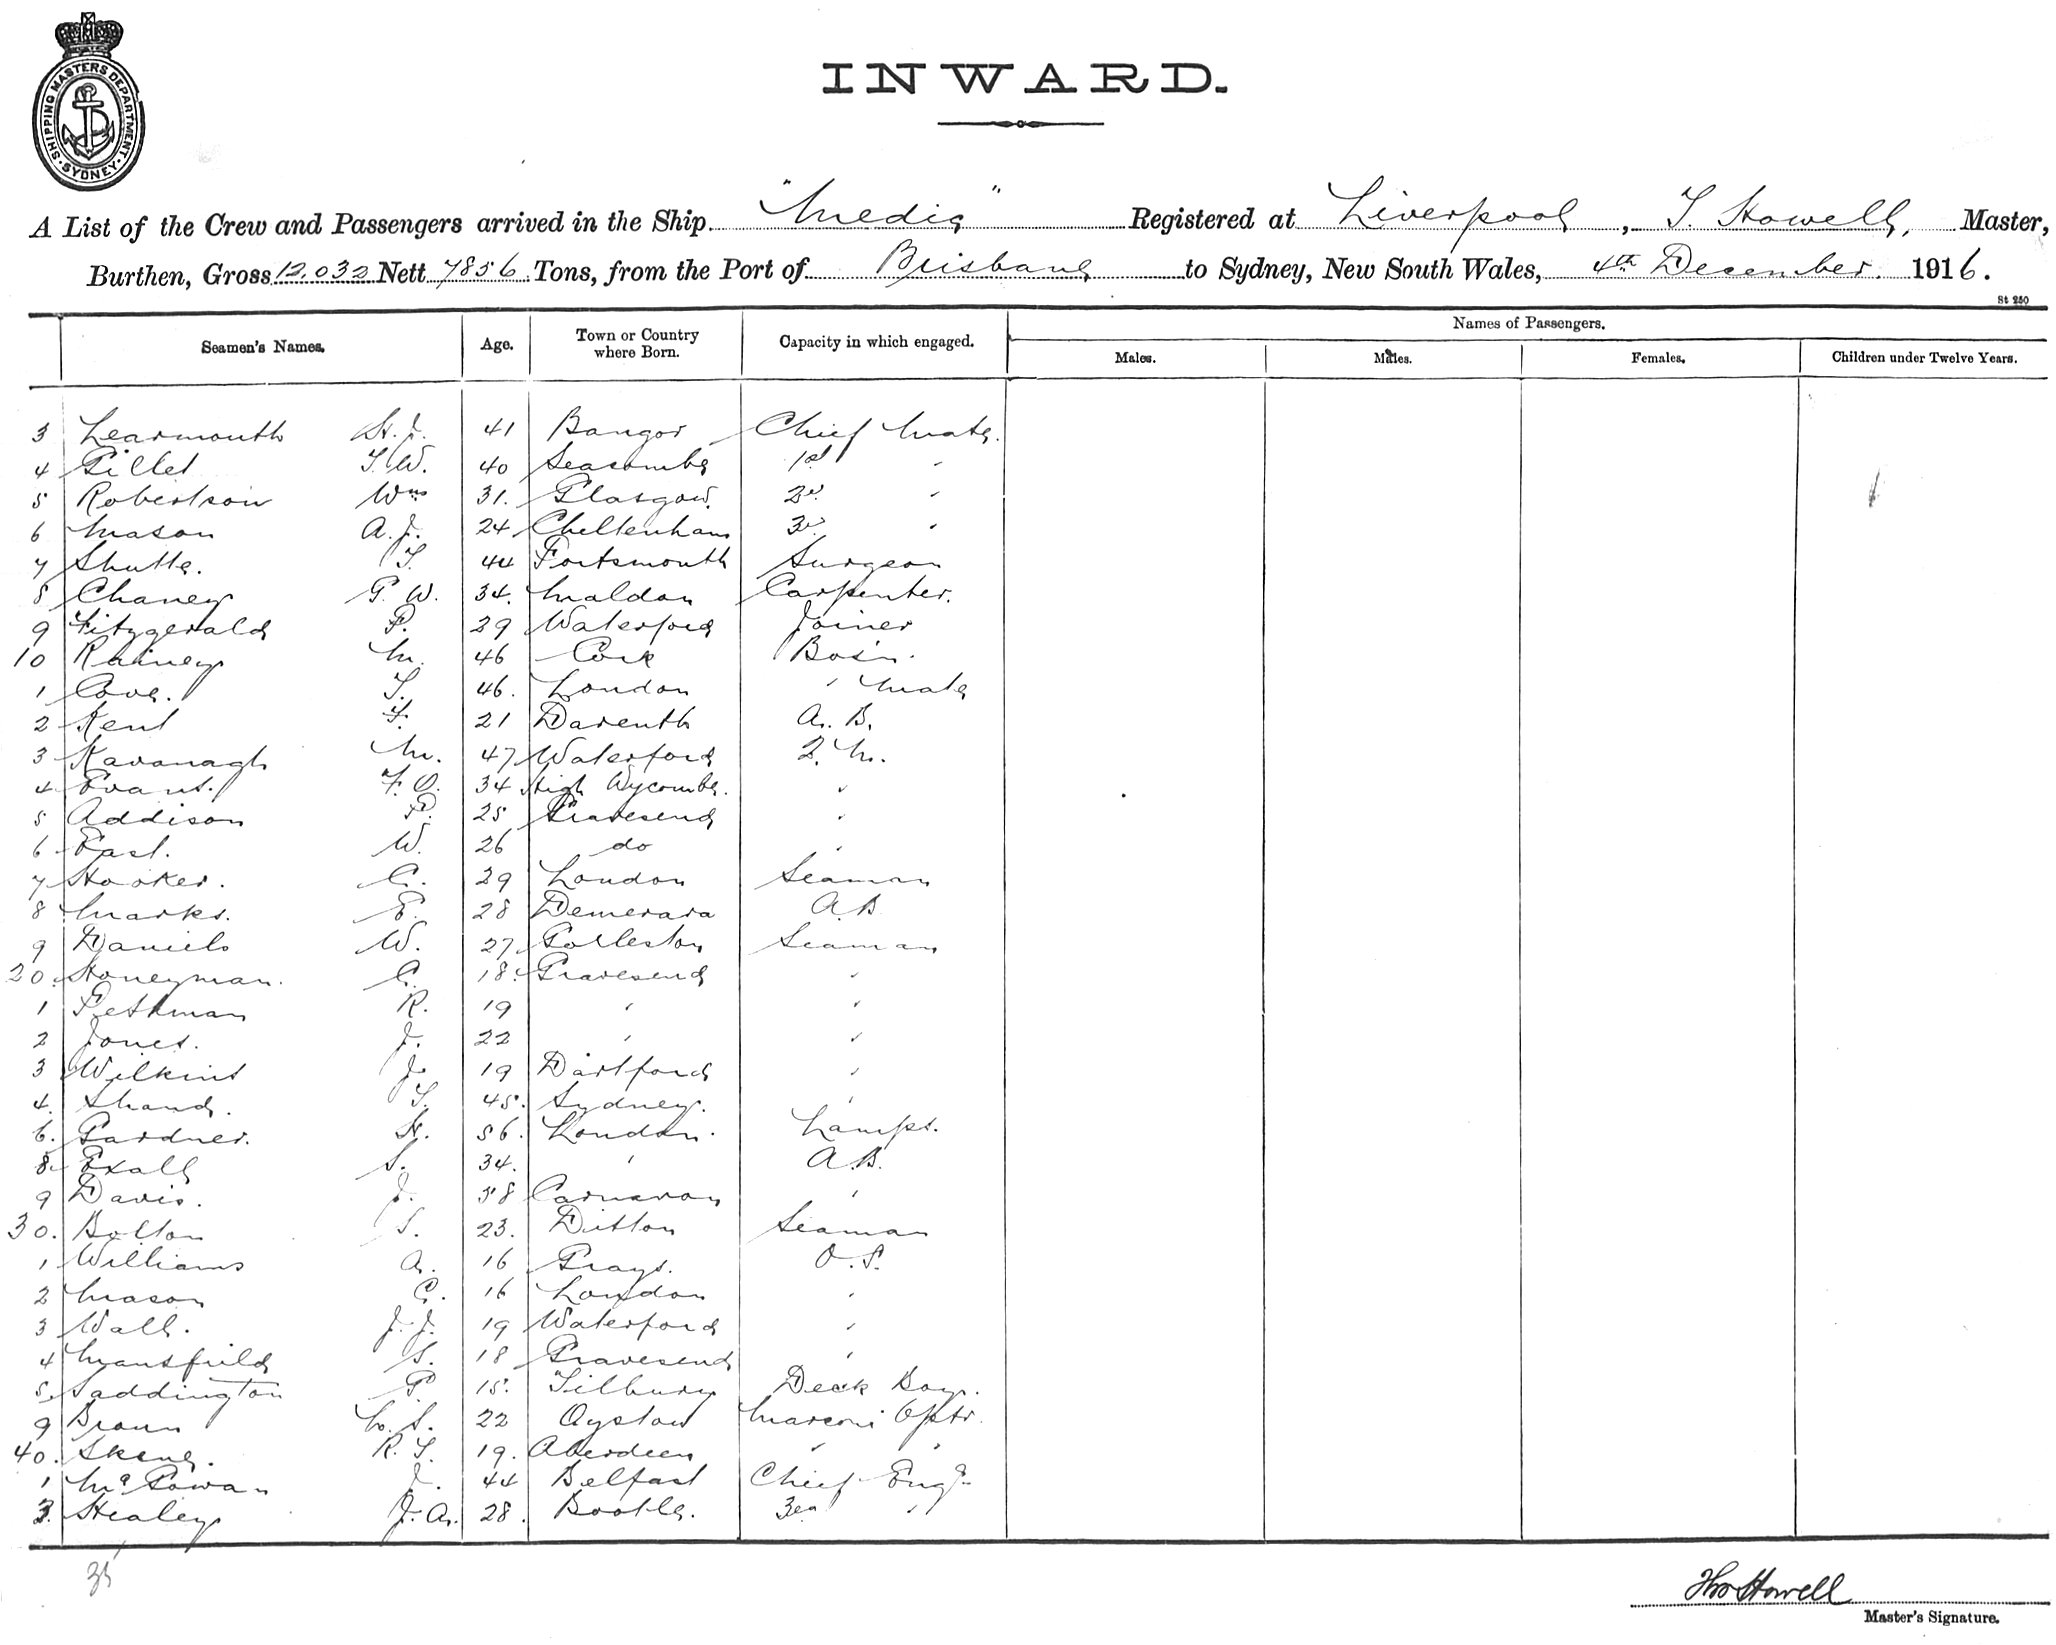 SHIPPING MASTERS DEPARTMENT · SYDNEY ·
INWARD.
A List of the Crew and Passengers arrived in the Ship "Medic" Registered at Liverpool, T. Howell, Master,
Burthen, Gross 12,032 Nett 7856 Tons, from the Port of Brisbane to Sydney, New South Wales, 4th December. 1916.
St 250
Seamen's Names. Age. Town or Country where Born. Capacity in which engaged. Names of Passengers.
Males. Males. Females. Children under Twelve Years.
3 Learmouth H. J. 41 Bangor Chief Mate.
4 Gillet T. W. 40 Seacombe 1st "
5 Robertson Wm 31. Glasgow. 2d "
6 Mason A. J. 24 Cheltenham 3d "
7 Shutte. T. 44 Portsmouth Surgeon
8 Chaney G. W. 34. Maldon Carpenter.
9 Fitzgerald P. 29 Waterford Joiner
10 Rainey M. 46 Cork Bos'n.
1 Cove. T. 46. London " Mate
2 Kent F. 21 Darenth A. B.
3 Kavanagh M. 47 Waterford Q. M.
4 Evans. F. O. 34 High Wycombe. "
5 Addison P. 25 Gravesend "
6 East. W. 26 do "
7 Hooker. C. 29 London Seaman
8 Marks. E. 28 Demerara A.B
9 Daniels W. 27 Gorleston Seaman
20. Honeyman. C. 18. Gravesend "
1 Pethman R. 19 " "
2 Jones. J. 22 " "
3 Wilkins J. 19 Dartford "
4. Shand. T. 45. Sydney. "
6. Gardner. H. 56. London. Lamps.
8. Exall S. 34. " A.B.
9 Davis. J. 58 Carnarvon "
30. Bolton S. 23. Ditton Seaman
1 Williams A. 16 Grays. O. S.
2 Mason C. 16 London "
3 Wall. J. J. 19 Waterford "
4 Mansfield S. 18 Gravesend "
5. Saddington P 15. Tilbury Deck Boy.
9 Braun S. 22 Marconi Optr.
40. Skene. R. T. 19. Aberdeen " "
1 McGowan J. 44 Belfast Chief Engr
3. Healey J. A. 28. Bootle. 3rd "
35
Thos Howell
Master's Signature.